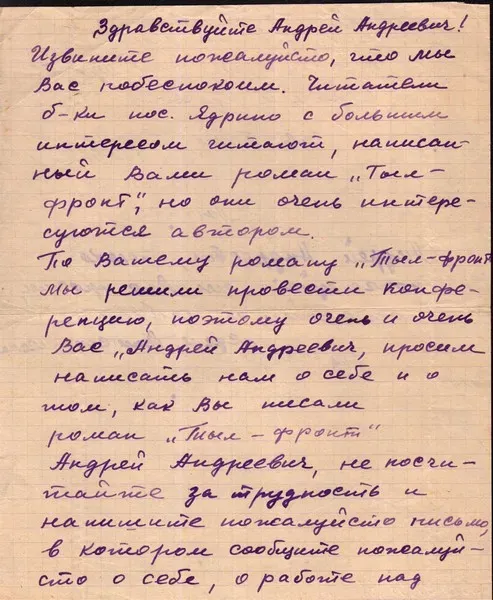 Здравствуйте Андрей Андреевич!
Извините пожалуйсто, что мы
Вас побеспокоим. Читатели
б-ки пос. Ядрино с большим
интересом читают, написан-
ный Вами роман „Тыл-
фронт", но они очень интере-
суются автором.
По Вашему роману „Тыл-фронт
мы решили провести конфе-
ренцию, поэтому очень и очень
Вас „Андрей Андреевич, просим
написать нам о себе и о
том, как Вы писали
роман „Тыл-фронт"
Андрей Андреевич, не посчи-
тайте за трудность и
напишите пожалуйсто письмо,
в котором сообщите пожалуй-
сто о себе, о работе над